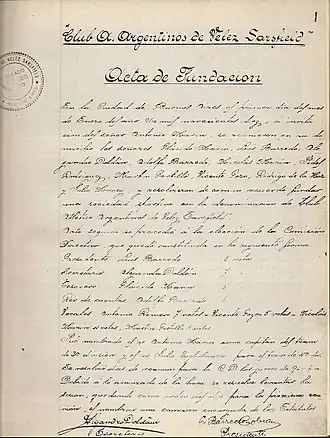 1
"Club A. Argentinos de Velez Sarsfield"
Acta de Fundacion
En la Ciudad de Buenos Aires el primer dia del mes
de Enero del año un mil novecientos diez, a invita
ción del señor Antonio Marin, se reunieron en su do
micilio los señores Plácido Marin, Luis Barredo, Ale
jandro Doldán, Adolfo Barredo, Nicolas Marin, Fidel
Rodriguez, Martin Portillo, Vicente Pozo, Rodrigo de la Hoz
y Julio y resolvieron de comun acuerdo fundar
una sociedad con la denominacion de "Club
Atletico Argentinos de Velez Sarsfield".
Acto seguido se procedió a la elección de la Comisión
Directiva que quedó constituida en la siguiente forma
Presidente Luis Barredo 5 votos
Secretario Alejandro Doldán 7 "
Tesorero Plácido Marin
Rev. de cuentas Adolfo Barredo 6
Vocales Antonio Romero 7 votos - Vicente Pozo 5 votos - Nicolas
Marin votos, Martin Portillo votos
Fué nombrado el sr. Antonio Marin como capitan del team
de division y el sr. Julio para el team de
dias de reunion para la C.D. los jueves de
Debido a lo avanzado de la hora se resolvió levantar la
sesion, quedando como para la proxima reu
nión, el nombrar una comision de los Estatutos
Alejandro Doldán L. Barredo
Secretario Presidente